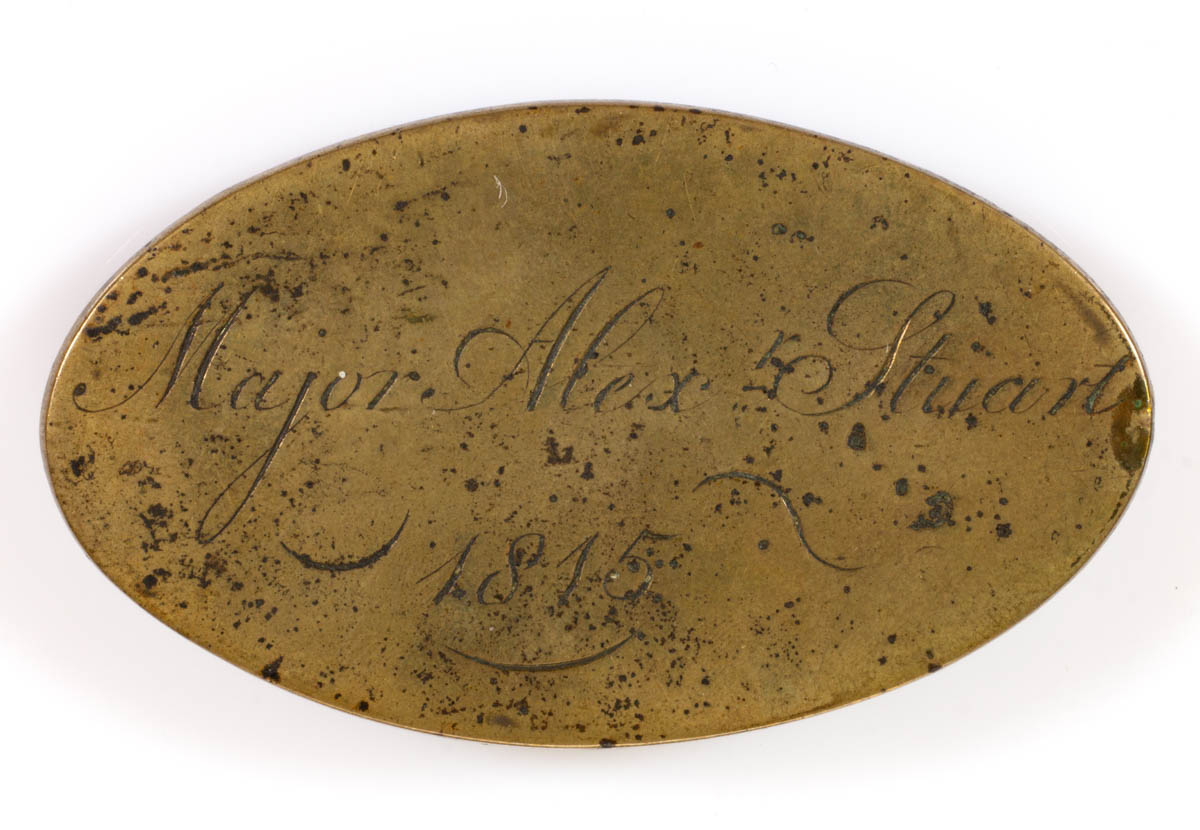 Major. Alex r Stuart.
1815